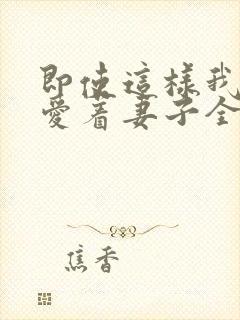 即使這樣我
愛着妻子全
焦香